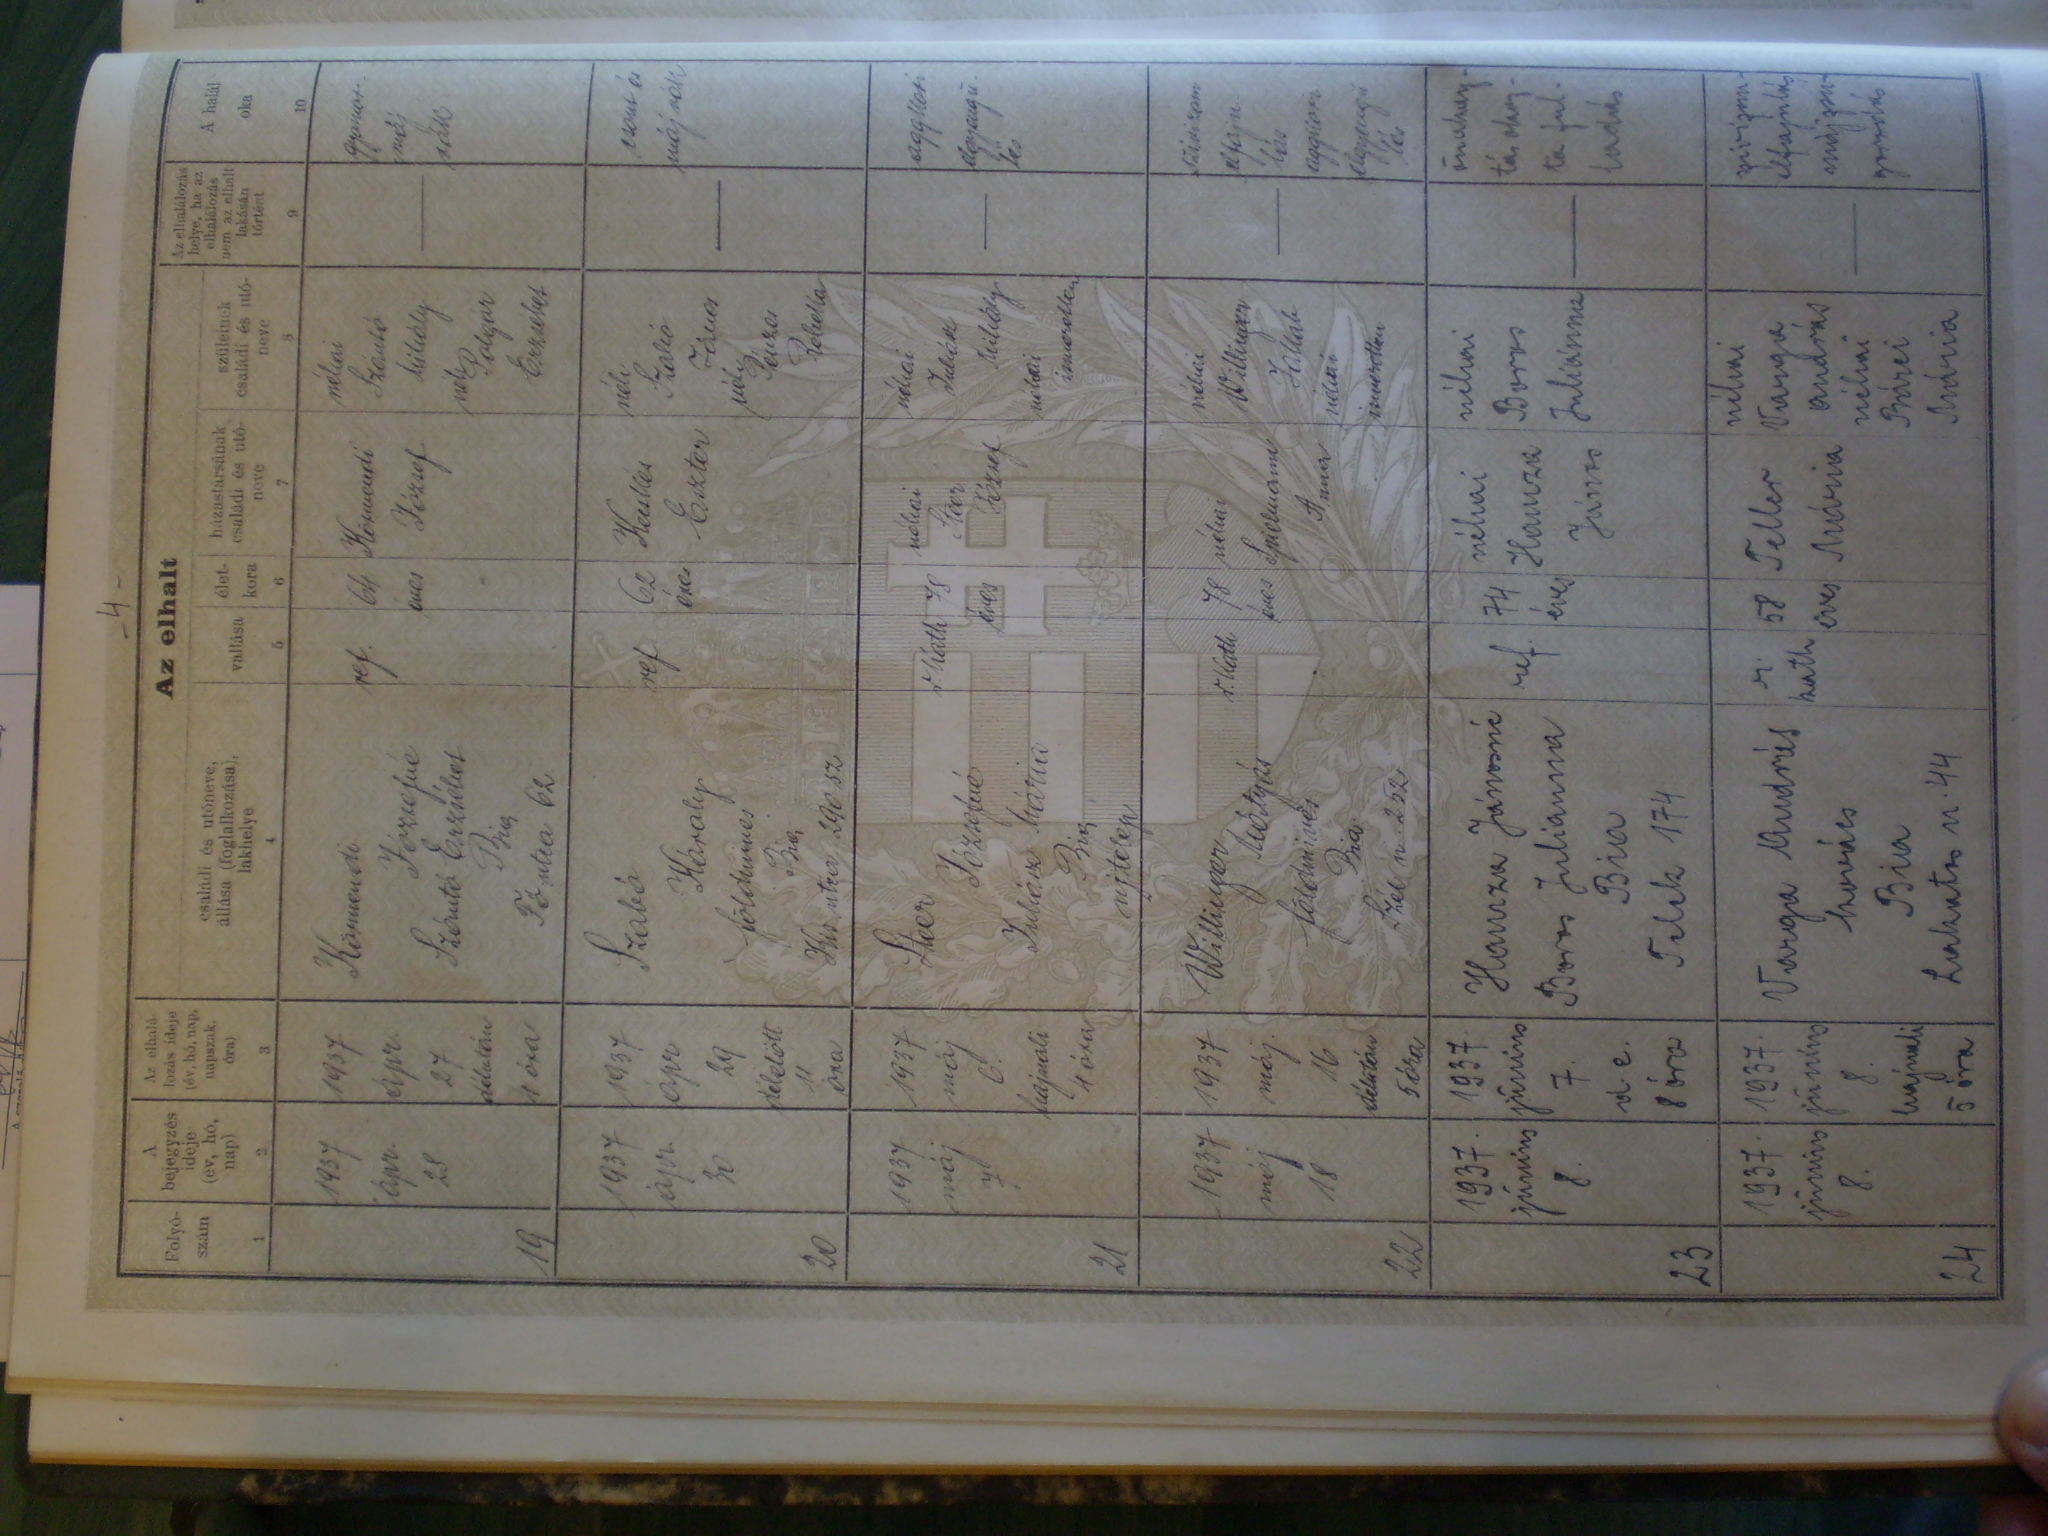 - 4 -
Az elhalt
Folyó-
szám
A
bejegyzés
ideje
(év, hó,
nap)
Az elhalá-
lozás ideje
(év, hó, nap,
napszak,
óra)
családi és utóneve,
állása (foglalkozása),
lakhelye
vallása
élet-
kora
házastársának
családi és utó-
neve
szüleinek
családi és utó-
neve
Az elhalálozás
helye, ha az
elhalálozás
nem az elhalt
lakásán
történt
A halál
oka
1
2
3
4
5
6
7
8
9
10
19
1937
ápr.
28
1937
ápr.
27
délután
óra
Körmendi
Józsefné
Erzsébet
Bia
Fő utca 62
ref.
64
éves
Körmendi
József
néhai
Szántó
Mihály
néh.
Polgár
Erzsébet
gyomor-
máj
rák
20
1937
ápr
30
1937
ápr
29
délelőtt
11
óra
Szabó
Károly
földmíves
Bia
Kis utca
ref.
62
éves
Kecskés
Eszter
néh.
Szabó
János
néh.
Rebeka
máj rák
21
1937
máj
7
1937
máj
6.
hajnali
4 óra
Steer
Józsefné
Juhász Mária
Bia
újtelep
r. kath
78
éves
néhai
Steer
József
néhai
Juhász
Mihály
néhai
ismeretlen
aggkori
elgyengü-
lés
22
1937
máj
18
1937
máj.
16
délután
5 óra
Willinger
Mátyás
földmíves
Bia
Szél u. 252
r. kath
78
éves
néhai
Spielmann
Anna
néhai
Willinger
néhai
ismeretlen
aggkori
elgyengü
lés
23
1937.
június
8.
1937.
június
7.
d. e.
8 óra
Hanza Jánosné
Boros Julianna
Bia
Telek 174
ref.
74
éves
néhai
Hanza
János
néhai
Boros
Julianna
24
1937.
június
8.
1937.
június
8.
hajnali
5 óra
Varga András
kovács
Bia
Lakatos u. 44
r.
kath
58
éves
Teller
Mária
néhai
Varga
András
néhai
Mária